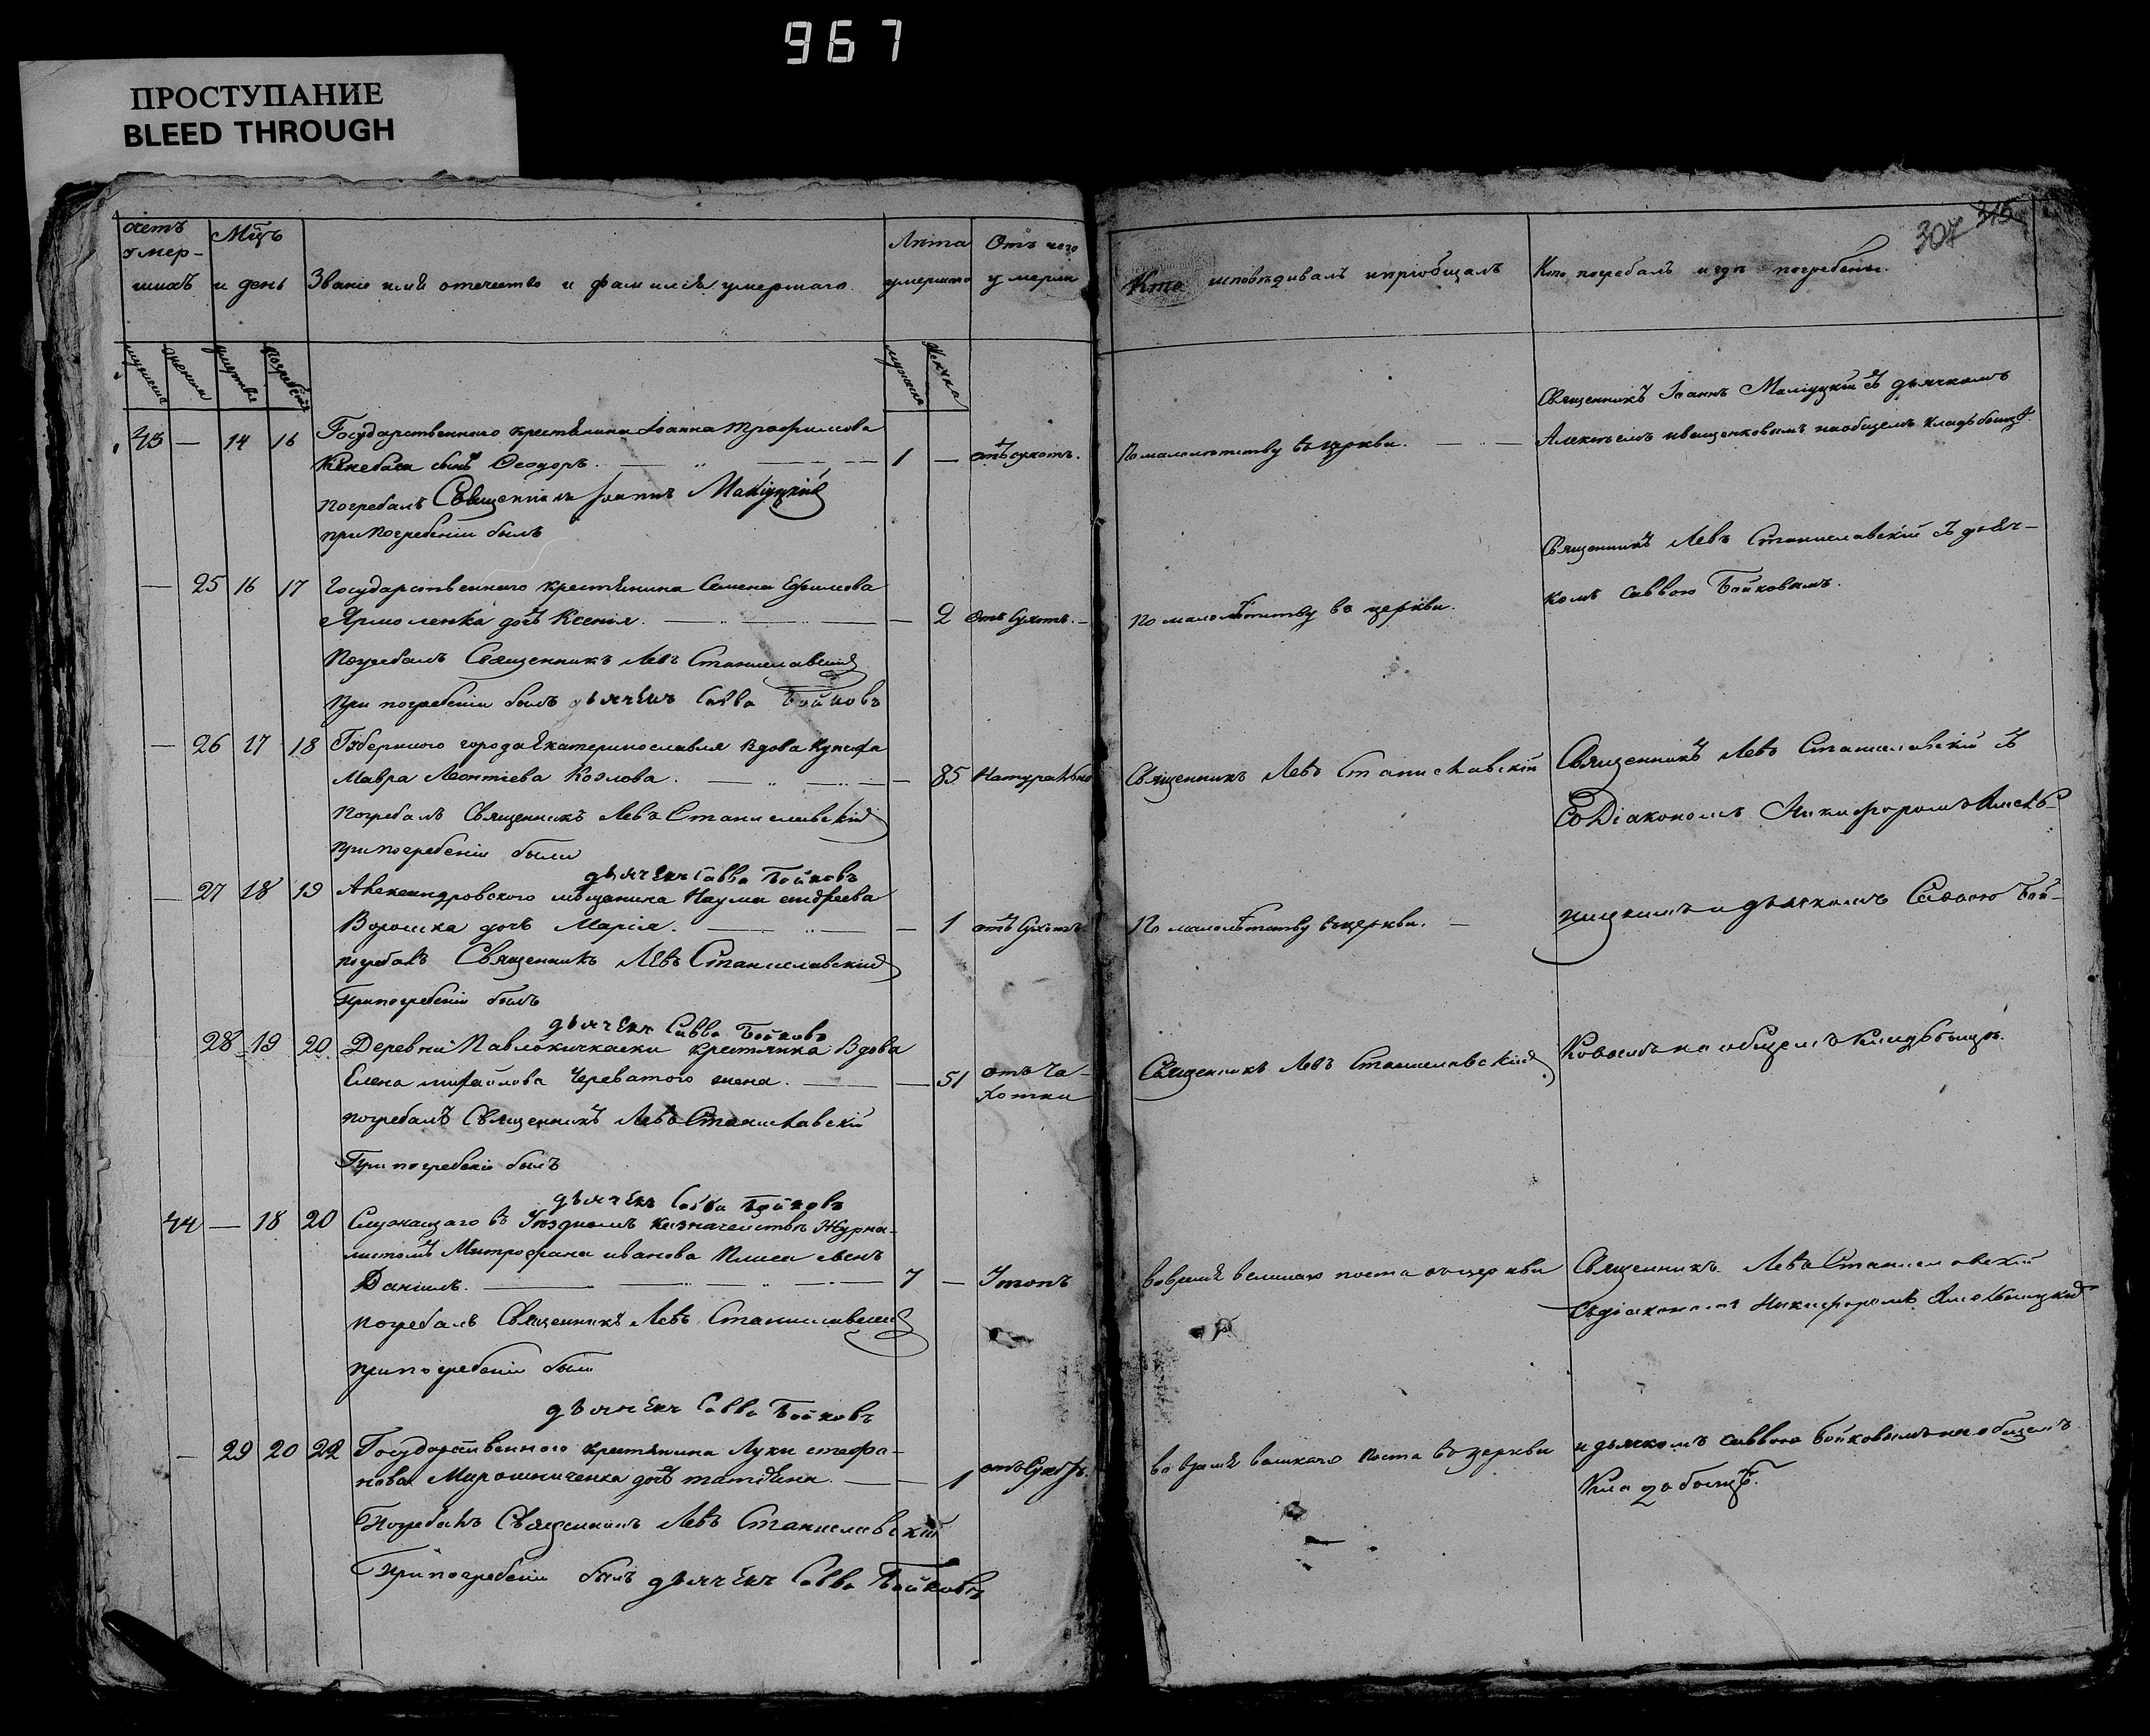 967
ПРОСТУПАНИЕ
BLEED THROUGH
307 315
Счетъ умер-шихъ
Мцъ и день
Званіе имя отечество и фамилія умершаго.
Лѣта умершаго
Отъ чего умерли
Кто исповѣдивалъ и пріобщалъ
Кто погребалъ и гдѣ погребены.
43 — 14 16 Государственнаго крестянина Іоанна Трофимова
сынъ Феодоръ. 1 — отъ сухотъ. По малолѣтству въ церкви.
Священникъ Іоаннъ Маліуцкій съ дьячкомъ
Алексѣемъ Иващенковымъ на общемъ кладбищѣ.
Погребалъ Священникъ Іоаннъ Маліуцкій
при погребеніи былъ
— 25 16 17 Государственнаго крестянина Семена Ефимова
Ярмоленка дочь Ксенія. — 2 отъ сухотъ. По малолѣтству въ церкви.
Священникъ Левъ Станиславскій съ дьяч-
комъ Саввою Бойковымъ.
Погребалъ Священникъ Левъ Станиславскій
При погребеніи былъ дьячекъ Савва Бойковъ
— 26 17 18 Губернскаго города Екатеринославля вдова купчиха
Мавра Леонтіева Козлова. — 85 Натурально Священникъ Левъ Станиславскій
Священникъ Левъ Станиславскій съ
Діакономъ Никифоромъ
Погребалъ Священникъ Левъ Станиславскій
При погребеніи были
дьячекъ Савва Бойковъ
— 27 18 19 Александровского мѣщанина Наума Андреева
Ворошка дочь Марія. — 1 отъ сухотъ. По малолѣтству въ церкви. —
и дьячкомъ Саввою Бой-
погребалъ Священникъ Левъ Станиславскій
При погребеніи былъ
дьячекъ Савва Бойковъ
28 19 20 Деревни Павлокичкаски крестянка вдова
Елена Михайлова Череватого жена. — 51 отъ ча-хотки Священникъ Левъ Станиславскій
ковымъ на общемъ кладбищѣ.
погребалъ Священникъ Левъ Станиславскій
При погребеніи былъ
дьячекъ Савва Бойковъ
44 — 18 20 Служащаго въ Уѣздномъ казначействѣ Журна-
листомъ Митрофана Иванова Плиса сынъ
Даніилъ. 7 — Утопъ во время великаго поста въ церкви
Священникъ Левъ Станиславскій
съ діакономъ Никифоромъ
погребалъ Священникъ Левъ Станиславскій
при погребеніи были
дьячекъ Савва Бойковъ
— 29 20 22 Государственнаго крестянина Луки Стефа-
нова Мирошниченка дочь Татіяна. — 1 отъ сухотъ. во время великаго поста въ церкви
и дьячкомъ Саввою Бойковымъ на общемъ
кладбищѣ.
Погребалъ Священникъ Левъ Станиславскій
При погребеніи былъ дьячекъ Савва Бойковъ